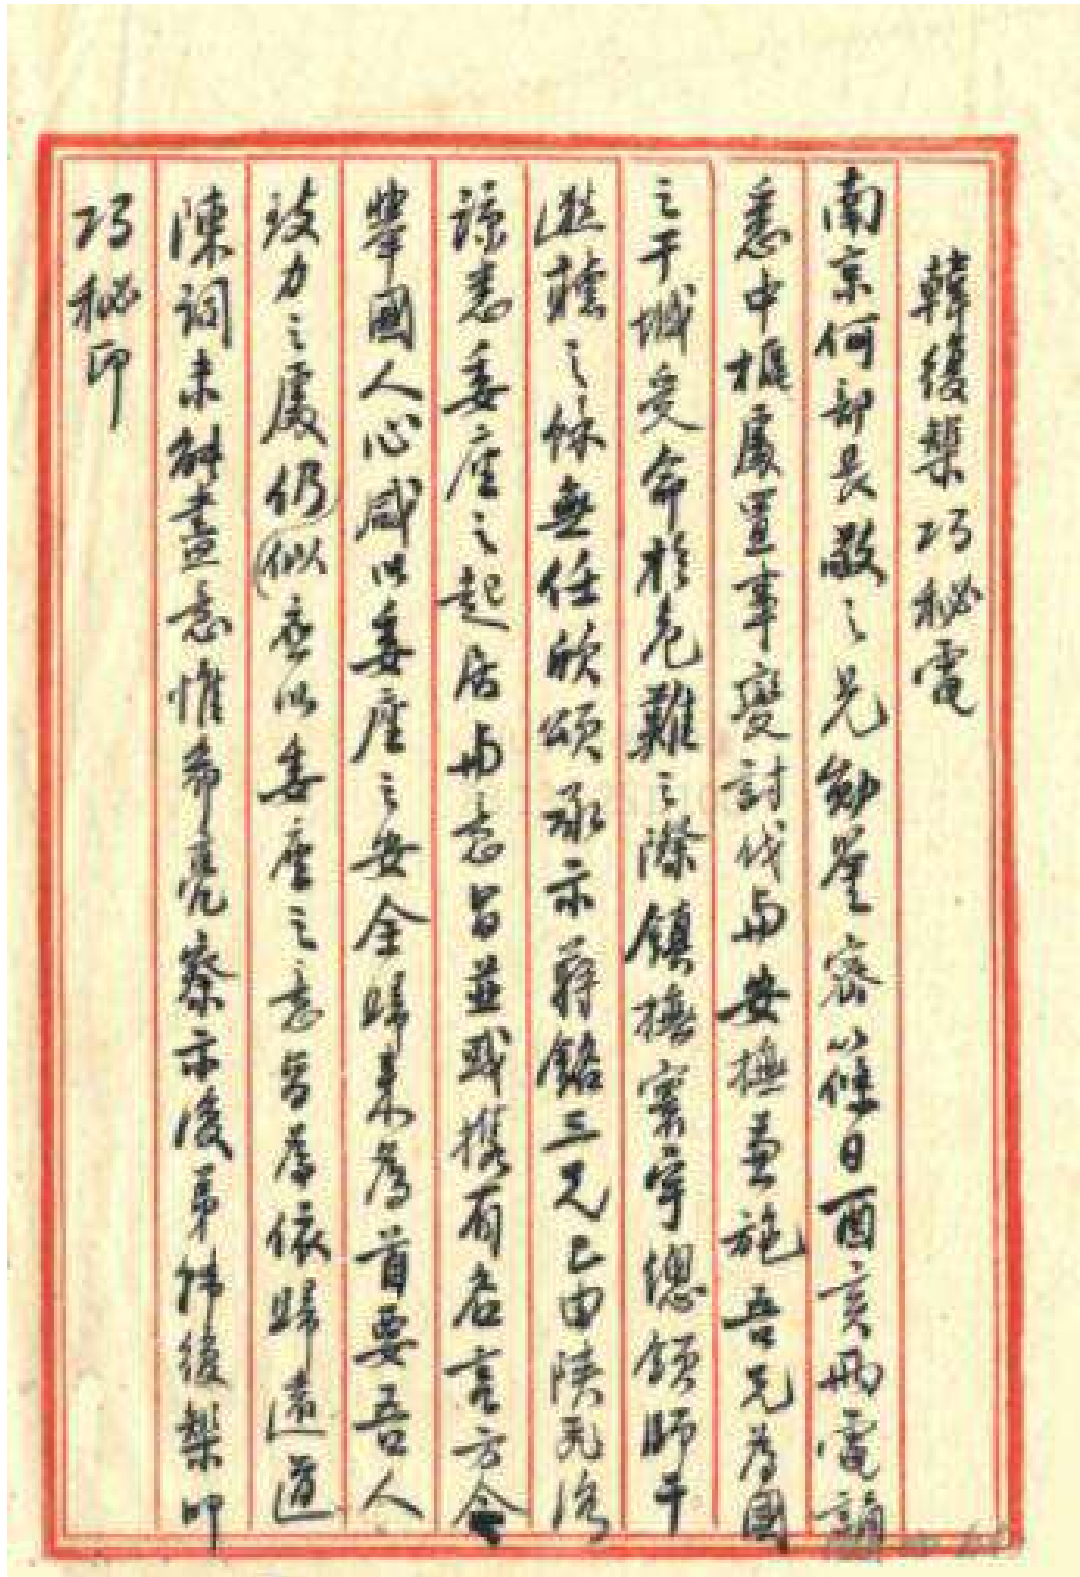 韓復榘巧秘電
南京何部長敬之兄勛鑒密篠日酉亥兩電誦
悉中樞處置事變討伐與安撫兼施吾兄為國
之干城受命於危難之際鎮撫寰宇總領師干
遜聽之餘無任欣頌承示蔣銘三兄已由陝飛洛
諒悉委座之起居與意旨並或攜有名言方今
舉國人心咸以委座之安全歸來為首要吾人
致力之處仍(似應以委座之意旨為依歸遠道
陳詞未能盡意惟希亮察示復弟韓復榘叩
巧秘印